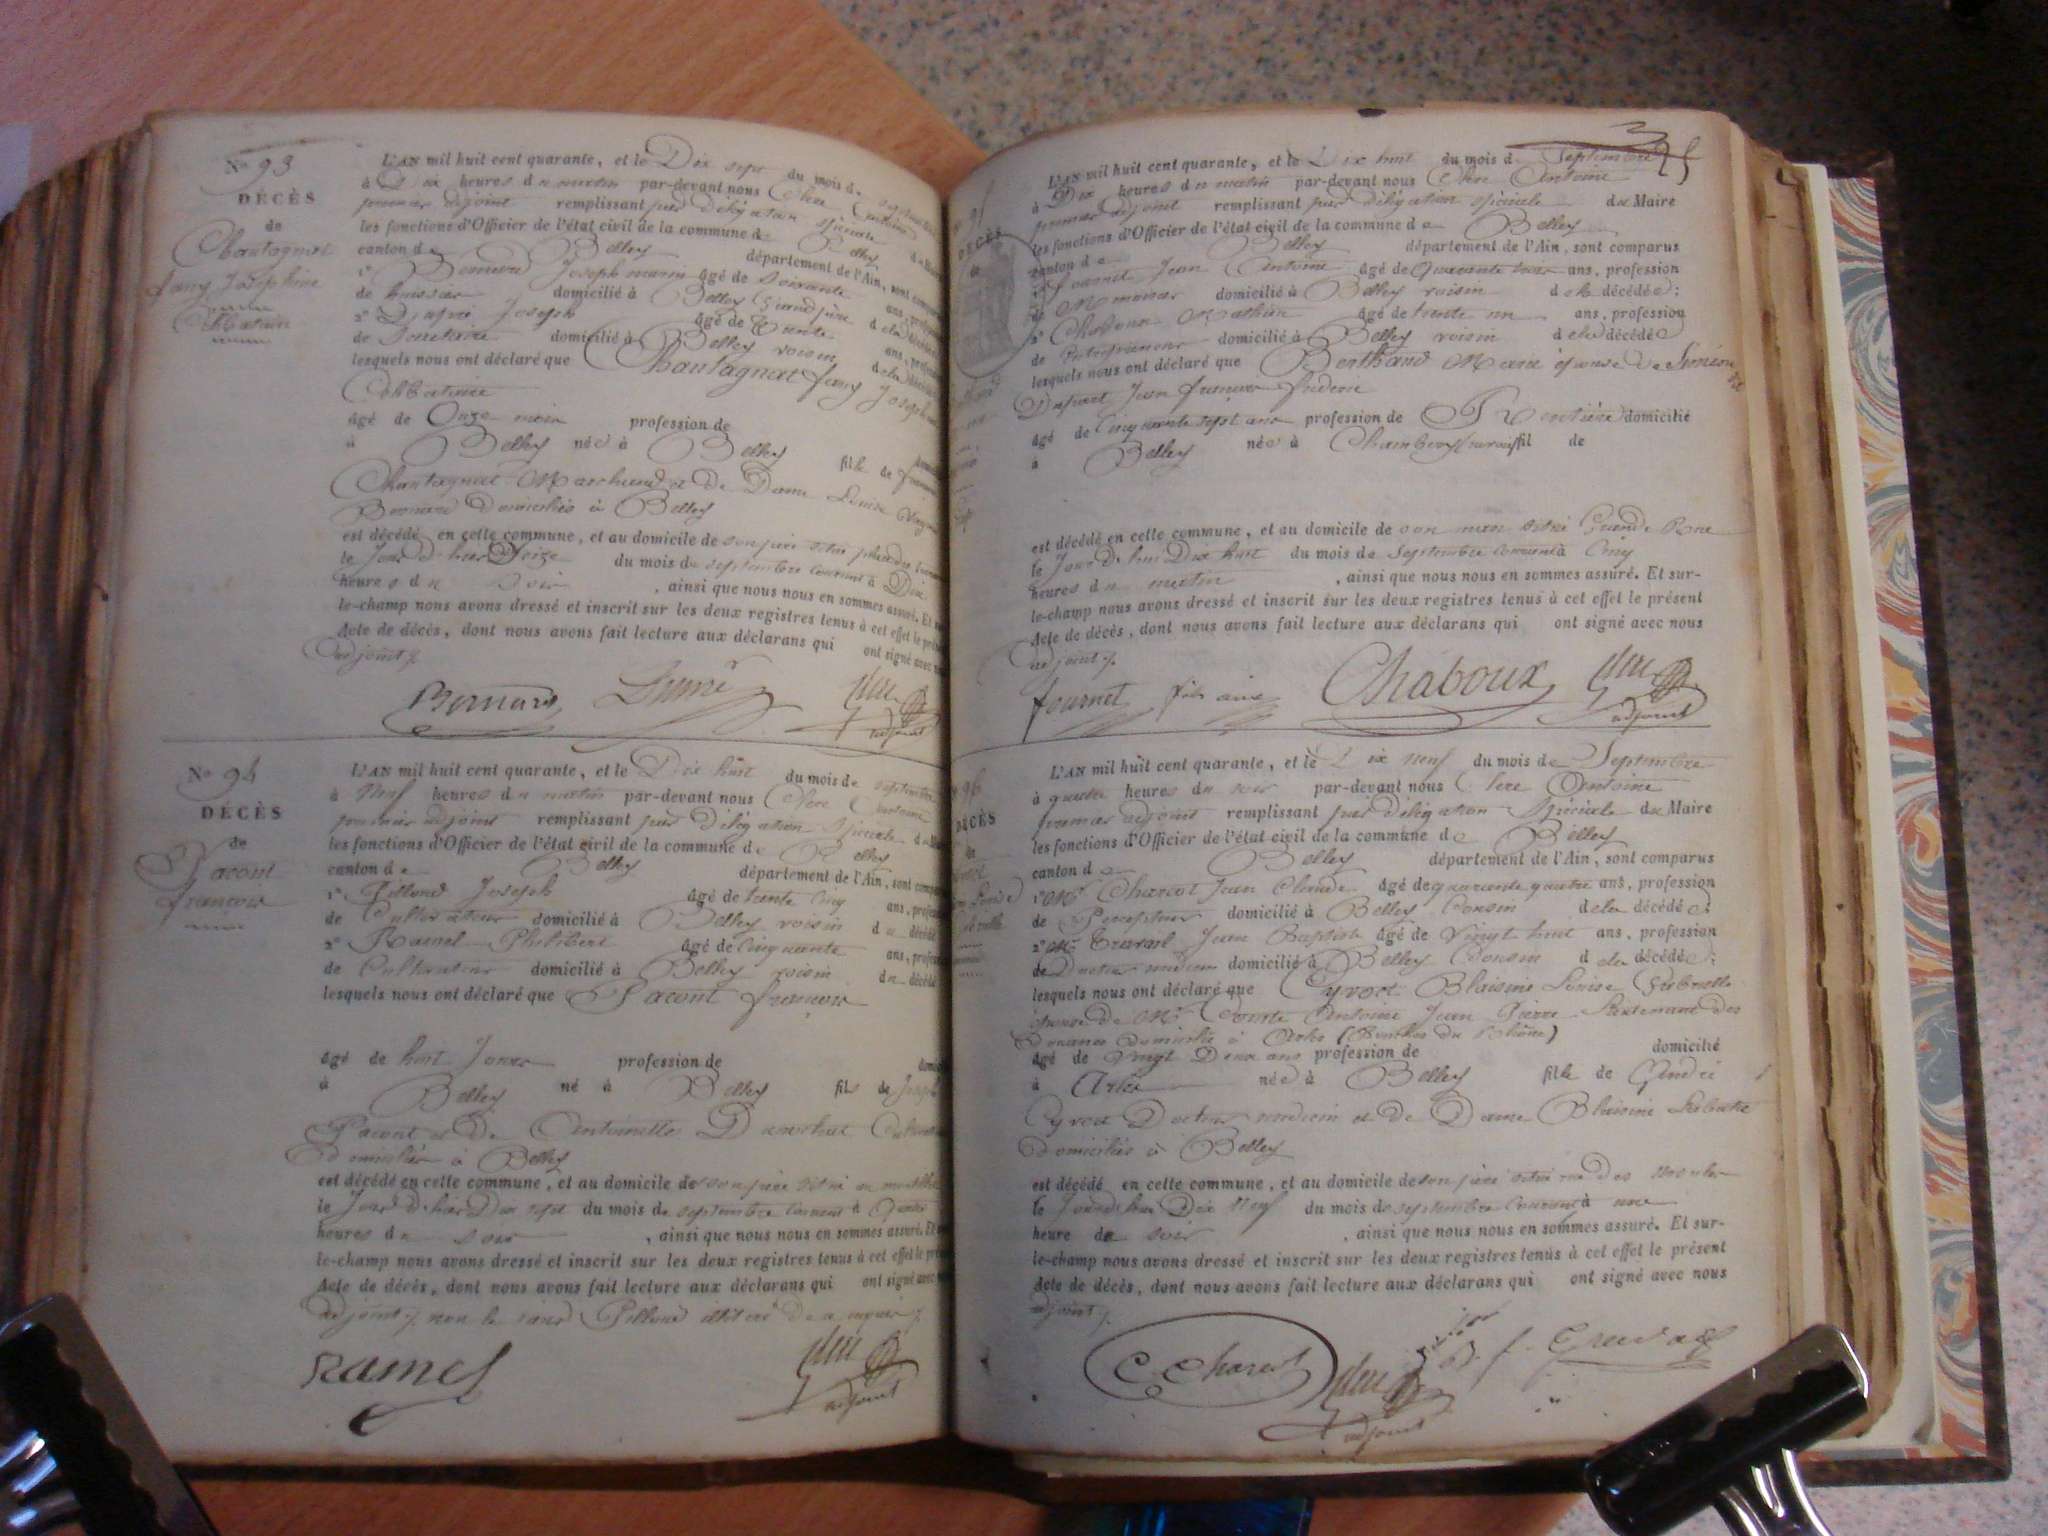 No 93
DÉCÈS
de
Chautagnat
fany Joséphine
L'AN mil huit cent quarante, et le Dix sept du mois de septembre
à Dix heures du matin par-devant nous Clere Antoine
premier adjoint remplissant par délégation spéciale du Maire
les fonctions d'Officier de l'état civil de la commune de Belley
canton de Belley département de l'Ain, sont comparus
1º Bernard Joseph marin âgé de soixante ans, profession
de huissier domicilié à Belley Grand père de la décédée
2º Joseph âgé de trente ans, profession
de domicilié à Belley voisin de la décédée
lesquels nous ont déclaré que Chautagnat fany Joséphine
Célibataire
âgé de Onze mois profession de
à Belley née à Belley fille de françois
Chautagnat Marchand et de Dame Louise
Bernard domiciliés à Belley
est décédé en cette commune, et au domicile de son père situé
le Jour d'hier Seize du mois de septembre courant à Dix
heures du soir, ainsi que nous nous en sommes assuré. Et sur-
le-champ nous avons dressé et inscrit sur les deux registres tenus à cet effet le présent
Acte de décès, dont nous avons fait lecture aux déclarans qui ont signé avec nous
adjoint
Bernard
adjoint
No 94
DÉCÈS
de
Pacont
françois
L'AN mil huit cent quarante, et le Dix huit du mois de septembre
à Neuf heures du matin par-devant nous Clere Antoine
premier adjoint remplissant par délégation spéciale du Maire
les fonctions d'Officier de l'état civil de la commune de Belley
canton de Belley département de l'Ain, sont comparus
1º Pillond Joseph âgé de trente cinq ans, profession
de Cultivateur domicilié à Belley voisin du décédé
2º Ramel Philibert âgé de cinquante ans, profession
de Cultivateur domicilié à Belley voisin du décédé
lesquels nous ont déclaré que Pacont françois
âgé de huit Jours profession de domicilié
à Belley né à Belley fils de Joseph
Pacont et de Antoinette
domiciliés à Belley
est décédé en cette commune, et au domicile de son père situé en
le Jour d'hier Dix sept du mois de septembre courant à
heures du soir, ainsi que nous nous en sommes assuré. Et
le-champ nous avons dressé et inscrit sur les deux registres tenus à cet effet le présent
Acte de décès, dont nous avons fait lecture aux déclarans qui ont signé avec
adjoint non le sieur Pillond
Ramel
adjoint
DÉCÈS
L'AN mil huit cent quarante, et le Dix huit du mois de Septembre
à Dix heures du matin par-devant nous Clere Antoine
premier adjoint remplissant par délégation spéciale du Maire
les fonctions d'Officier de l'état civil de la commune de Belley
canton de Belley département de l'Ain, sont comparus
1º fournet Jean Antoine âgé de quarante trois ans, profession
de Menuisier domicilié à Belley voisin de la décédée;
2º Chaboux Mathieu âgé de trente un ans, profession
de domicilié à Belley voisin de la décédée
lesquels nous ont déclaré que Berthaud Marie épouse de Siméon
Jean françois
âgé de Cinquante sept ans profession de Rentière domicilié
à Belley née à Chambery fil de
est décédé en cette commune, et au domicile de son mari situé Grande Rue
le Jour d'hui Dix huit du mois de septembre courant à Cinq
heures du matin, ainsi que nous nous en sommes assuré. Et sur-
le-champ nous avons dressé et inscrit sur les deux registres tenus à cet effet le présent
Acte de décès, dont nous avons fait lecture aux déclarans qui ont signé avec nous
adjoint
fournet fils ainé Chaboux
adjoint
96
DÉCÈS
L'AN mil huit cent quarante, et le Dix neuf du mois de Septembre
à quatre heures du soir par-devant nous Clere Antoine
premier adjoint remplissant par délégation Spéciale du Maire
les fonctions d'Officier de l'état civil de la commune de Belley
canton de Belley département de l'Ain, sont comparus
1º Mr Charcot Jean Claude âgé de quarante quatre ans, profession
de Percepteur domicilié à Belley Cousin de la décédée
2º Mr Jean Baptiste âgé de vingt huit ans, profession
de Docteur médecin domicilié à Belley Cousin de la décédée;
lesquels nous ont déclaré que Cyvoct Blaisine Louise Gabrielle
épouse de Mr Comte Antoine Jean Pierre Lieutenant des
Douanes domicilié à Arles (Bouches du Rhône)
âgé de vingt Deux ans profession de domicilié
à Arles née à Belley fille de André
Cyvoct Docteur médecin et de Dame Blaisine
domiciliés à Belley
est décédé en cette commune, et au domicile de son père situé rue des
le Jour d'hui Dix Neuf du mois de septembre courant à une
heure de soir, ainsi que nous nous en sommes assuré. Et sur-
le-champ nous avons dressé et inscrit sur les deux registres tenus à cet effet le présent
Acte de décès, dont nous avons fait lecture aux déclarans qui ont signé avec nous
adjoint
C. Charcot
adjoint